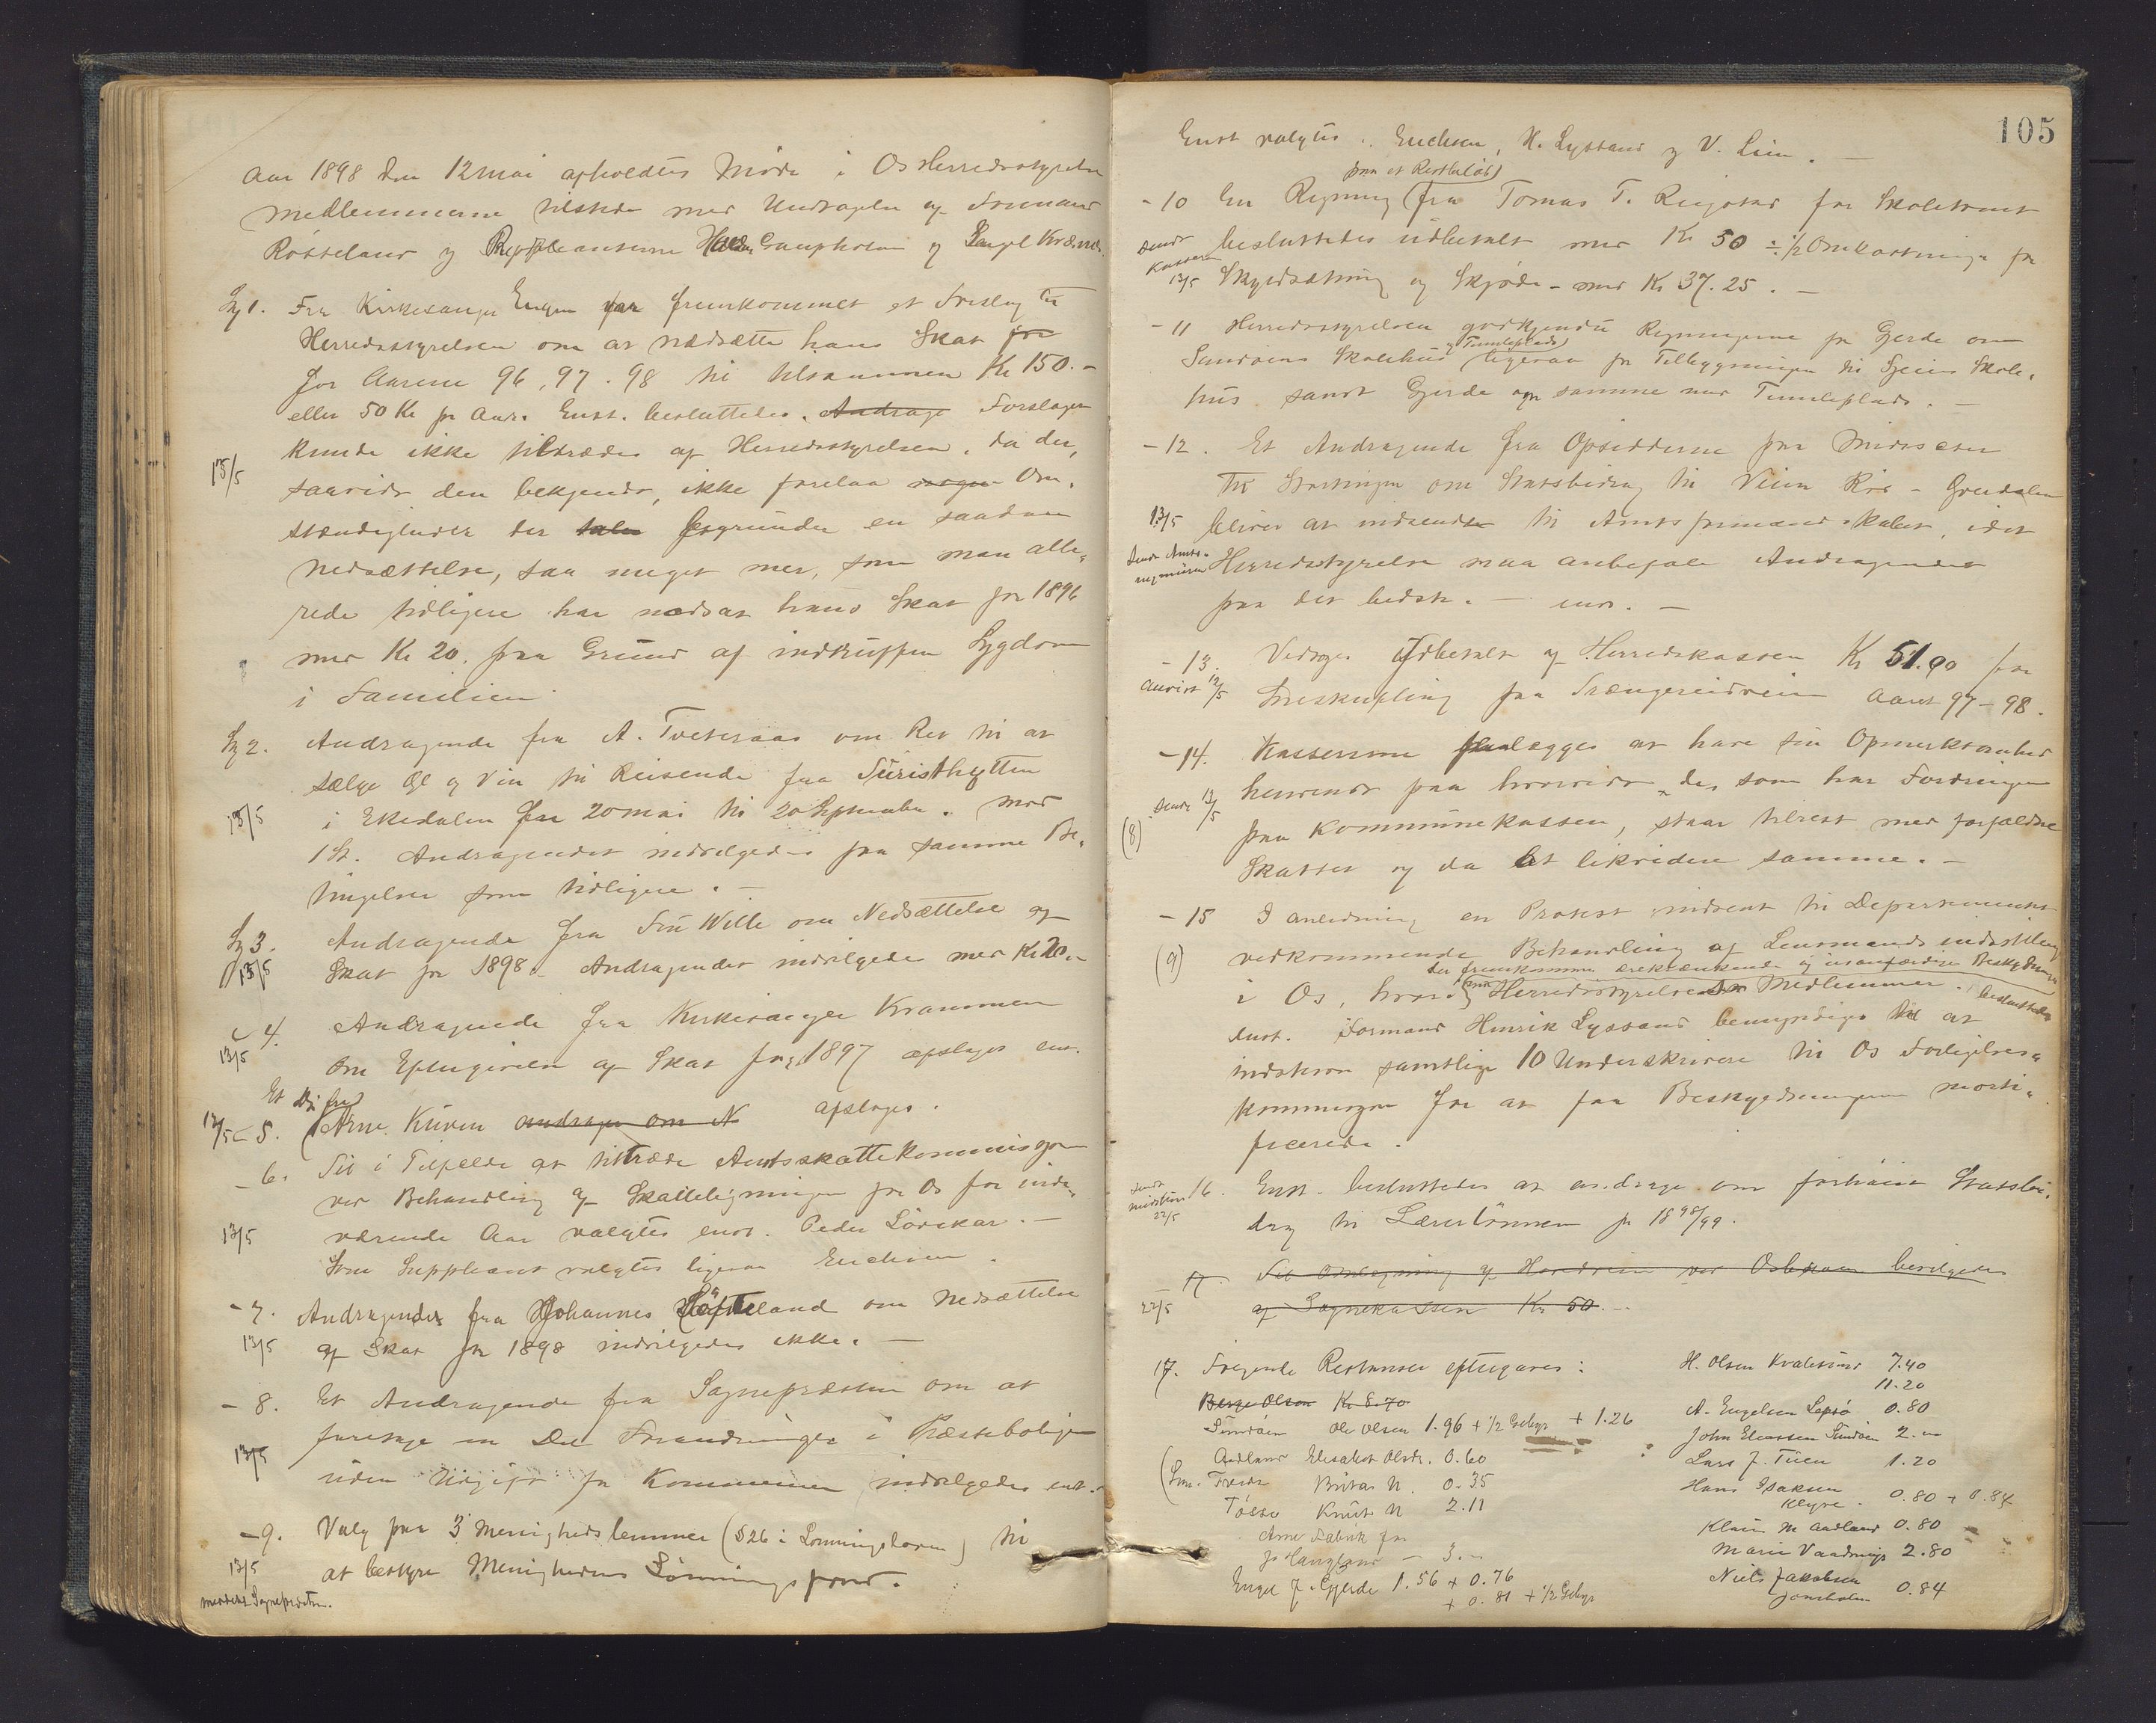 Aar 1898 den 12 mai afholdtes Møde i Os Herredsstyrelse
medlemmerne tilstede med Undtagelse af Formand
Røtteland og Suppleanterne Haldor Gaupholm og Engel Kvæven
Sag 1. Fra Kirkesanger Engen var fremkommet et Forslag til
Herredsstyrelsen om at nedsætte hans Skat for
for Aarene 96, 97. 98 til tilsammen Kr 150.-
eller 50 Kr pr Aar. Enst. besluttedes. Andrage Forslaget
kunde ikke tiltrædes af Herredsstyrelsen, da der,
13/5 saavidt den bekjendt, ikke forelaa nogen Om-
stændigheder der begrunder en saadan
Nedsættelse, saa meget mer, som man alle-
rede tidligere har nedsat hans Skat for 1896
med Kr 20. paa Grund af indtruffen Sygdom
i Familien.
Sag 2. Andragende fra A. Tveteraas om Ret til at
sælge Øl og Vin til Reisende fra Turisthytten
13/5 i Ekedalen fra 20 mai til 20 September. mod
1 St. Andragendet indvilgedes paa samme Be-
tingelser som tidligere. -
Sag 3. Andragende fra Fru Wille om Nedsættelse af
13/5 Skat for 1898. Andragendet indvilgedes med Kr 20.-
- 4. Andragende fra Kirkesanger Krammen
13/5 om Eftergivelse af Skat for 1897 afslages ens.
Et Do fra
13/5 - 5. Arne Kuven andrager om N afslages.
- 6. Til i Tilfælde at tiltræde Amtsskattekommissionen
ved Behandling af Skatteligningen for Os for inde-
13/5 værende Aar valgtes enst. Peder Lørekar. -
Som Suppleant valgtes ligesaa Erichsen.
- 7. Andragendet fra Johannes Hafteland om Nedsættelse
13/5 af Skat for 1898 indvilgedes ikke. -
- 8. Et Andragende fra Sognepræsten om at
foretage en Del Forandringer i Præsteboligen
13/5 uden Udgift for Kommunen, indvilgedes enst.
- 9. Valg paa 3 Menighedslemmer (§ 26 i Lønningsloven) til
13/5 at bestyre Menighedens Lønningsfond.
meddelt Sognepræsten.
105
Enst valgtes: Erichsen, H. Lyssand og V. Lien. -
paa et Restbeløb
- 10 En Regning fra Tomas T. Røigstad for Skoletomt
sendt Kasserer 13/5 besluttedes udbetalt med Kr 50 ÷ 1/2 Omkostninge for
Skyldsætning og Skjøde - med Kr 37.25. -
- 11 Herredsstyrelsen godkjendte Regningerne for Gjerde om
og Tumleplads
Sundøens Skolehus ligesaa for Tilbygningen til Sjeins Skole-
hus samt Gjerde om samme med Tumleplads. -
- 12. Et Andragende fra Opsidderne paa Midtsæter
til Stortinget om Statsbidrag til Veien Riis - Grøndalen
13/5 bliver at indsende til Amtsformandskabet, idet
sendt Amts- Herredsstyrelsen maa anbefale Andragendet
paa det bedste. - ens. -
- 13. Vedtoges Udbetalt af Herredskassen Kr 51.90 for
anvist 12/5 Sneskufling paa Trængereidveien Aaret 97-98.
- 14. Kassererne paalægges at have sin Opmerksomhed
sendt 13/5 henvendt paa hvorvidt de, som har Fordringer
(8) paa Kommunekassen, staar tilrest med forfaldne
Skatter og da at likvidere samme. -
- 15 I anledning en Protest indsent til Departementet
(9) vedkommende Behandling af Lensmands indstilling
der fremkommer ærekrænkende og usandfærdige Beskyldninger
i Os, hvori mod Herredsstyrelsens Medlemmer. besluttedes
enst. Formand Henrik Lyssand bemyndiges til at
indstevne samtlige 10 Underskrivere til Os Forligelses-
kommission for at faa Beskyldningerne morti-
ficerede.
16. Enst. besluttedes at andrage om forhøiet Statsbi-
22/5 drag til Lærerlønnen for 1898/99.
17. Ved Omlægning af Hovedveien ved Osbroen bevilgedes
22/5 af Sognekassen Kr 50. -
17. Følgende Restanser eftergaves:
Børge Olson Kr 8.70
Sundøen Ole Olsen 1.96 + 1/2 Gebyr + 1.26
Aadland Elisabet Olsdr. 0.60
Britas N. 0.35
Tøsse Knut N 2.11
Arne Fabrik for
Jo Haugland - 3.-
Engel J. Gjerde 1.56 + 0.76
+ 0.81 + 1/2 Gebyr
H. Olsen Kvalesund 7.40
11.20
A. Engelsen Lepsø 0.80
John Eliassen Sundøen 2.-
Lars J. Tuen 1.20
Hans Isaksen
Klyve. 0.80 + 0.84
Klaus M Aadland 0.80
Marie Vaadning 2.80
Niels Jakobsen
0.84